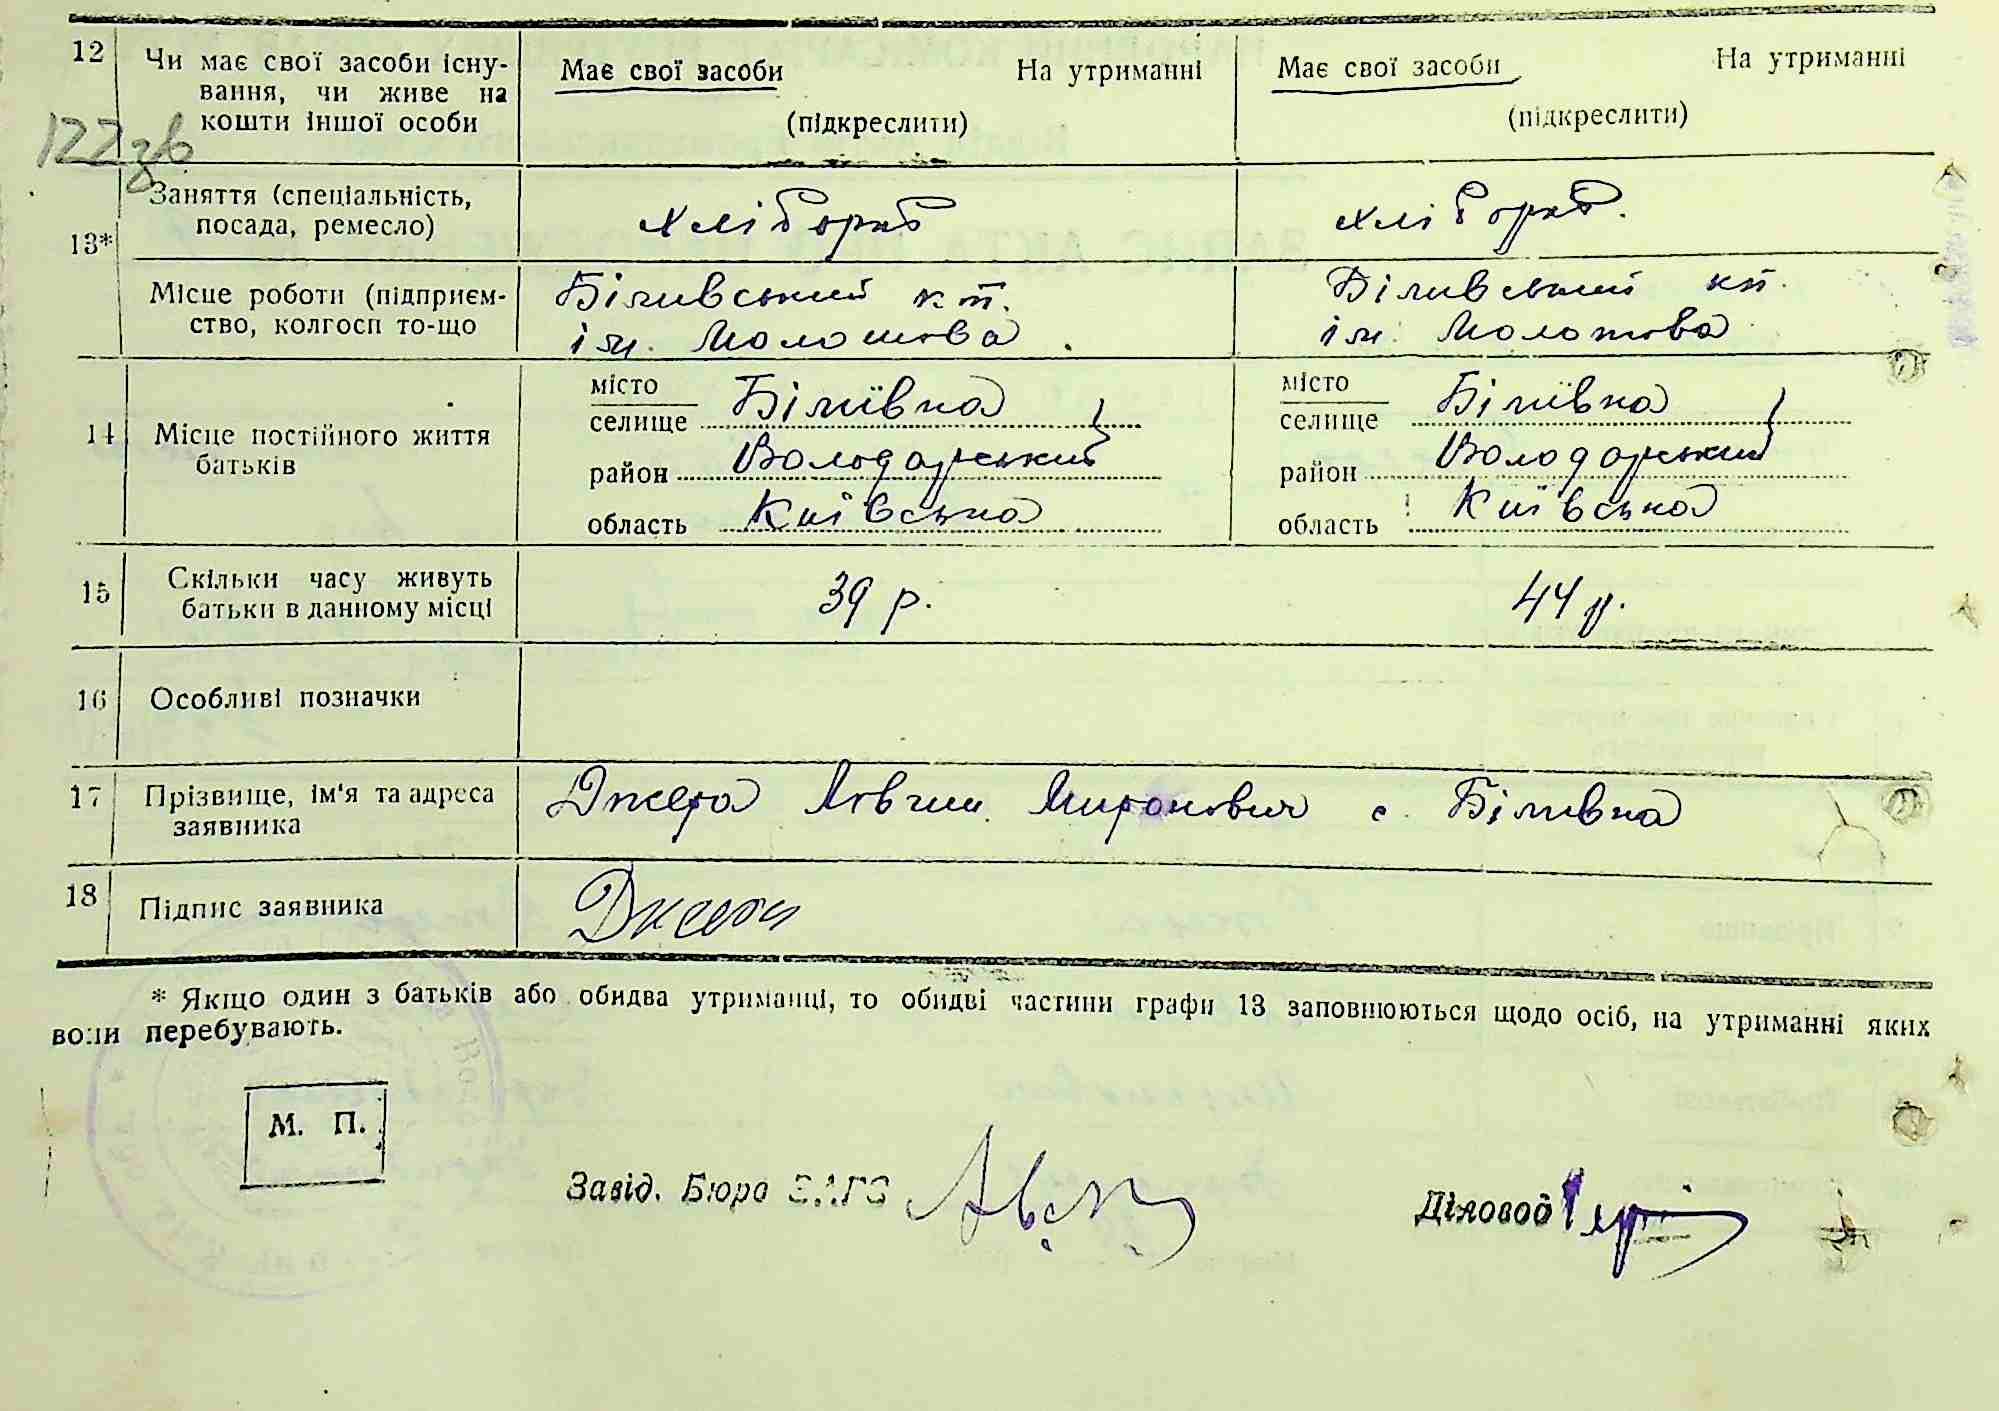 12 Чи має свої засоби існу-
вання, чи живе на
кошти іншої особи
Має свої засоби На утриманні
(підкреслити)
Має свої засоби На утриманні
(підкреслити)
122зв
13* Заняття (спеціальність,
посада, ремесло)
хлібороб
хлібороб.
Місце роботи (підприєм-
ство, колгосп то-що
Біливський кт.
ім. Молотова.
Біливський кп.
ім. Молотова
14 Місце постійного життя
батьків
місто
селище Біліївка
район Володарський
область Київська
місто
селище Біліївка
район Володарський
область Київська
15 Скільки часу живуть
батьки в данному місці
39 р.
44 р.
16 Особливі позначки
17 Прізвище, ім'я та адреса
заявника
Джера Миронович с. Біливка
18 Підпис заявника
* Якщо один з батьків або обидва утриманці, то обидві частини графи 13 заповнюються щодо осіб, на утриманні яких
вони перебувають.
М. П.
Завід. Бюро ЗАГС
Діловод